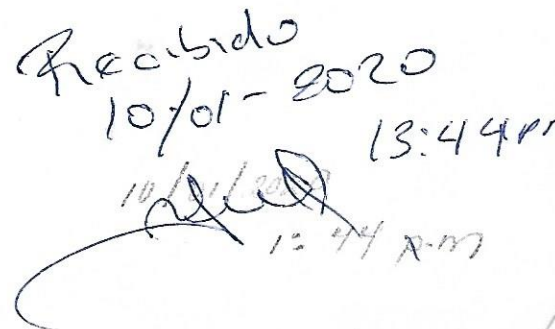 Recibido
10/01-2020
13:44 pm
10/01/2020
1:44 p.m